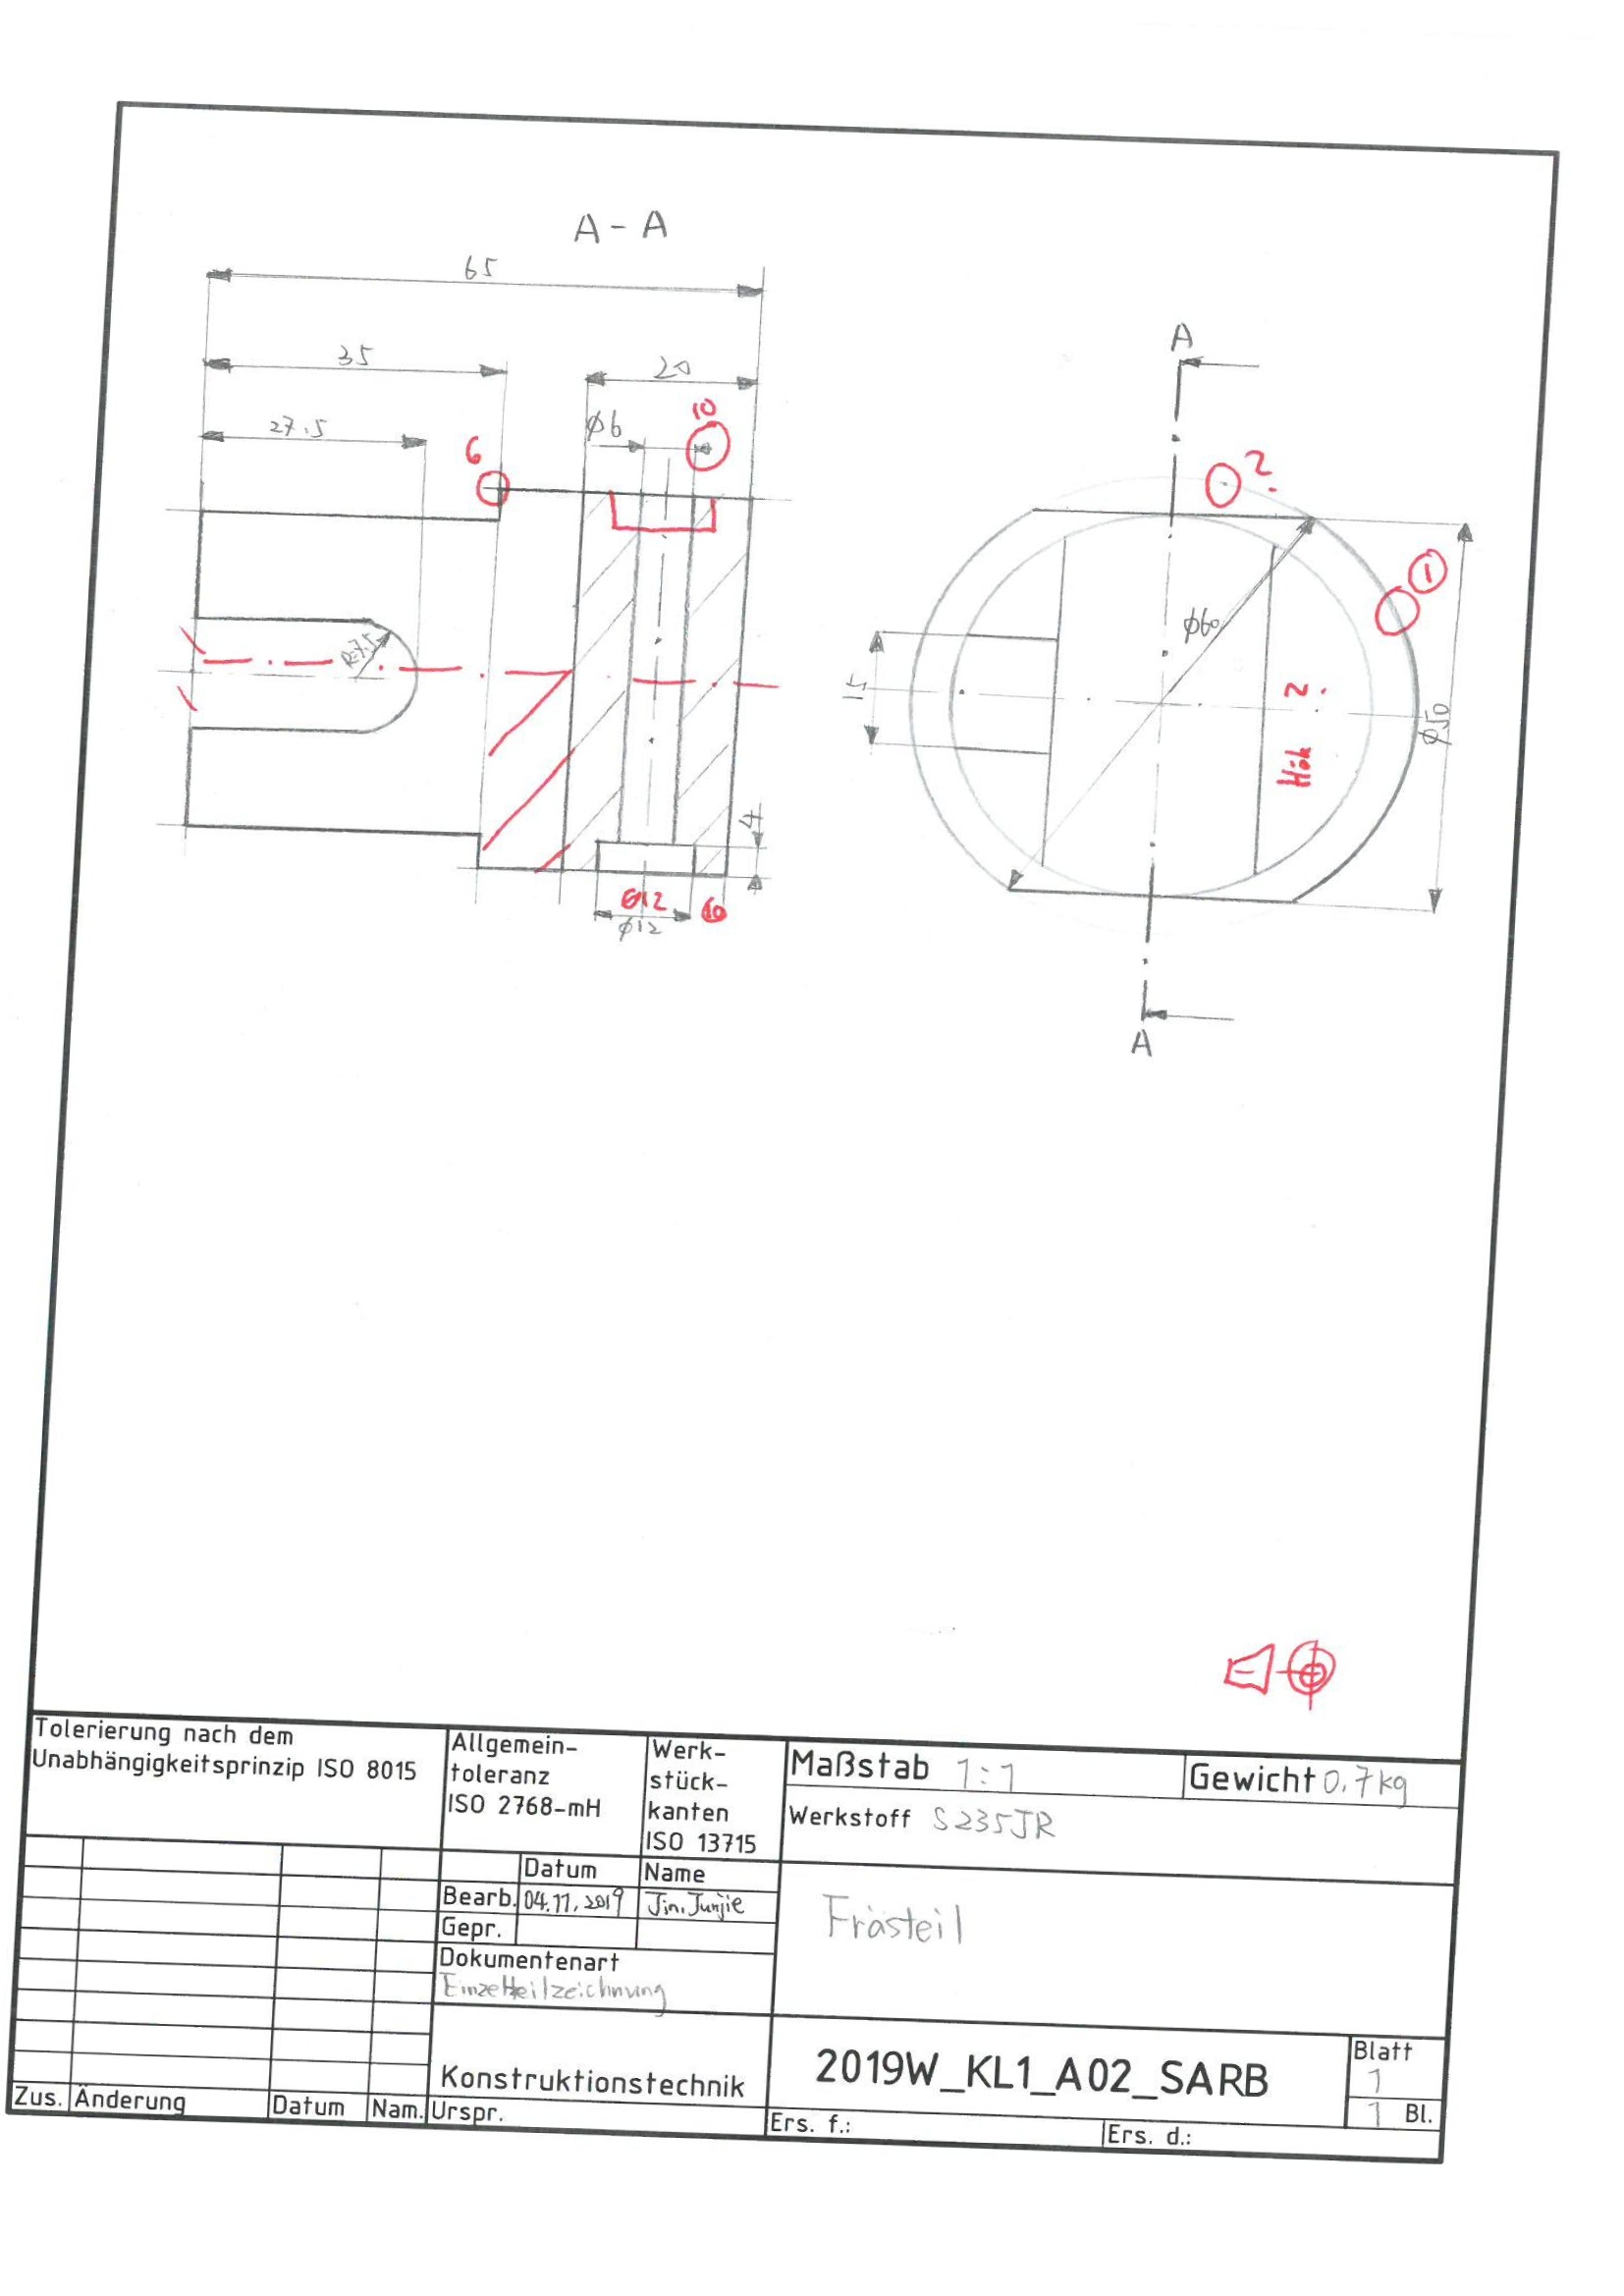 A - A
65
35
20
27.5
Ø6
10
6
R=7.5
4
12
Ø12
10
A
2
1
Ø60
15
2.
Ø50
A
Tolerierung nach dem
Unabhängigkeitsprinzip ISO 8015
Allgemein-
toleranz
ISO 2768-mH
Werk-
stück-
kanten
ISO 13715
Maßstab 1:1
Gewicht 0.7kg
Werkstoff S235JR
Datum
Name
Bearb. 04.11.2019 Jin.Junjie
Gepr.
Frästeil
Dokumentenart
Einzelteilzeichnung
Konstruktionstechnik
2019W_KL1_A02_SARB
Blatt
1
1 Bl.
Zus. Änderung Datum Nam. Urspr.
Ers. f.:
Ers. d.: